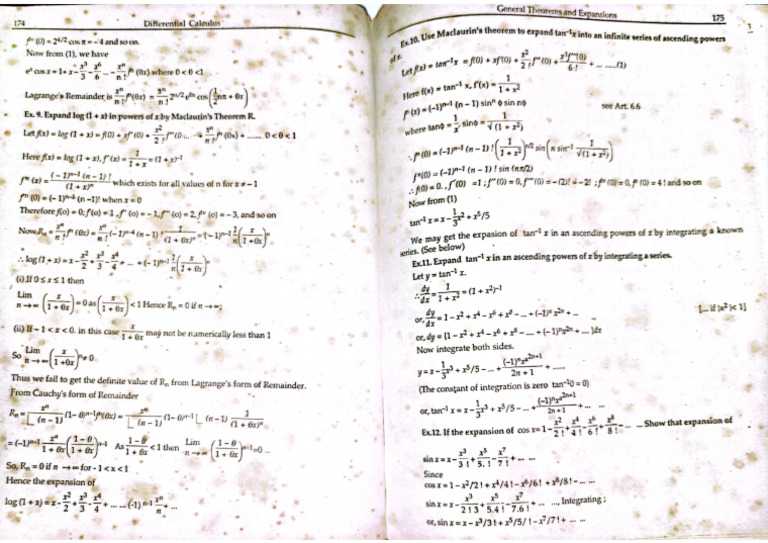 174 Differential Calculus
fⁱᵛ (0) = 2⁴ᐟ² cos π = – 4 and so on.
Now from (1), we have
eˣ cos x = 1 + x – x³/3 – x⁴/6 ... xⁿ/n! fⁿ (θx) where 0 < θ < 1
Lagrange's Remainder is xⁿ/n! fⁿ(θx) = xⁿ/n! 2ⁿᐟ² e^θx cos (1/2 nπ + θx)
Ex. 9. Expand log (1 + x) in powers of x by Maclaurin's Theorem R.
Let f(x) = log (1 + x) = f(0) + xf'(0) + x²/2! f''(0 ... + xⁿ/n! fⁿ(θx) + ....... 0 < θ < 1
Here f(x) = log (1 + x), f'(x) = 1/(1 + x) = (1 + x)⁻¹
fⁿ (x) = (– 1)ⁿ⁻¹ (n – 1) !/(1 + x)ⁿ which exists for all values of n for x ≠ – 1
fⁿ (0) = (– 1)ⁿ⁻¹ (n –1)! when x = 0
Therefore f(o) = 0; f'(o) = 1, f'' (o) = – 1, f''' (o) = 2, fⁱᵛ (o) = – 3, and so on
Now Rₙ = xⁿ/n! fⁿ (θx) = xⁿ/n! (–1)ⁿ⁻¹ (n – 1)! 1/(1 + θx)ⁿ = (– 1)ⁿ⁻¹ 1/n (x/(1 + θx))ⁿ
∴ log (1 + x) = x – x²/2 + x³/3 – x⁴/4 + ... + (– 1)ⁿ⁻¹ 1/n (x/(1 + θx))ⁿ
(i) If 0 ≤ x ≤ 1 then
Lim n → ∞ (x/(1 + θx)) = 0 as (x/(1 + θx)) < 1 Hence Rₙ = 0 if n → ∞;
(ii) If – 1 < x < 0. in this case x/(1 + θx) may not be numerically less than 1
So Lim n → ∞ (x/(1 + θx))ⁿ ≠ 0
Thus we fail to get the definite value of Rₙ from Lagrange's form of Remainder.
From Cauchy's form of Remainder
Rₙ = xⁿ/(n – 1) (1– θ)ⁿ⁻¹ fⁿ(θx) = xⁿ/(n – 1) (1 – θ)ⁿ⁻¹ (n – 1) 1/(1 + θx)ⁿ
= (–1)ⁿ⁻¹ xⁿ/(1 + θx) ((1 – θ)/(1 + θx))ⁿ⁻¹ As (1 – θ)/(1 + θx) < 1 then Lim n → ∞ ((1 – θ)/(1 + θx))ⁿ⁻¹ = 0 ...
So, Rₙ = 0 if n → ∞ for - 1 < x < 1
Hence the expansion of
log (1 + x) = x - x²/2 + x³/3 – x⁴/4 + ... ... (-1) ⁿ⁻¹ xⁿ/n + ...
General Theorems and Expansions 175
Ex.10. Use Maclaurin's theorem to expand tan⁻¹x into an infinite series of ascending powers
of x.
Let f(x) = tan⁻¹x = f(0) + xf'(0) + x²/2! f'' (0) + x³f'''(0)/6 ! + ... ......(1)
Here f(x) = tan⁻¹ x, f'(x) = 1/(1 + x²)
fⁿ (x) = (–1)ⁿ⁻¹ (n – 1) sinⁿ ϕ sin nϕ see Art. 6.6
where tanϕ = 1/x, sinϕ = 1/√(1 + x²)
∴ fⁿ (0) = (–1)ⁿ⁻¹ (n – 1) ! (1/(1 + x²))ⁿᐟ² sin (n sin⁻¹ 1/√(1 + x²))
fⁿ(0) = (–1)ⁿ⁻¹ (n – 1) ! sin (nπ/2)
∴ f(0) = 0, f' (0) =1 ; f'' (0) = 0, f''' (0) = – (2)! = – 2! ; fⁱᵛ (0) = 0, fᵛ (0) = 4 ! and so on
Now from (1)
tan⁻¹ x = x – 1/3 x³ + x⁵/5
We may get the expasion of tan⁻¹ x in an ascending powers of x by integrating a known
series. (See below)
Ex.11. Expand tan⁻¹ x in an ascending powers of x by integrating a series.
Let y = tan⁻¹ x.
∴ dy/dx = 1/(1 + x²) = (1 + x²)⁻¹
or, dy/dx = 1 – x² + x⁴ – x⁶ + x⁸ – ... + (–1)ⁿ x²ⁿ + ... [... if |x²|< 1]
or, dy = {1 – x² + x⁴ – x⁶ + x⁸ – ... + (– 1)ⁿx²ⁿ + ... }dx
Now integrate both sides.
y = x – 1/3 x³ + x⁵/5 – ... + (–1)ⁿx²ⁿ⁺¹/2n + 1 ......
(The constant of integration is zero tan⁻¹0 = 0)
or, tan⁻¹ x = x – 1/3 x³ + x⁵/5 – ... + (–1)ⁿx²ⁿ⁺¹/2n + 1 ... ...
Ex.12. If the expansion of cos x = 1 – x²/2 ! + x⁴/4 ! – x⁶/6 ! + x⁸/8 ! – ... ... Show that expansion of
sin x = x – x³/3 ! + x⁵/5. ! – x⁷/7 ! + ... ...
Since
cos x = 1 – x²/2 ! + x⁴/4 ! – x⁶/6 ! + x⁸/8 ! – ... ...
sin x = x – x³/2 ! 3 + x⁵/5.4 ! – x⁷/7.6 ! + ... ..., Integrating ;
or, sin x = x – x³/3 ! + x⁵/5/ ! – x⁷/7 ! + ... ...